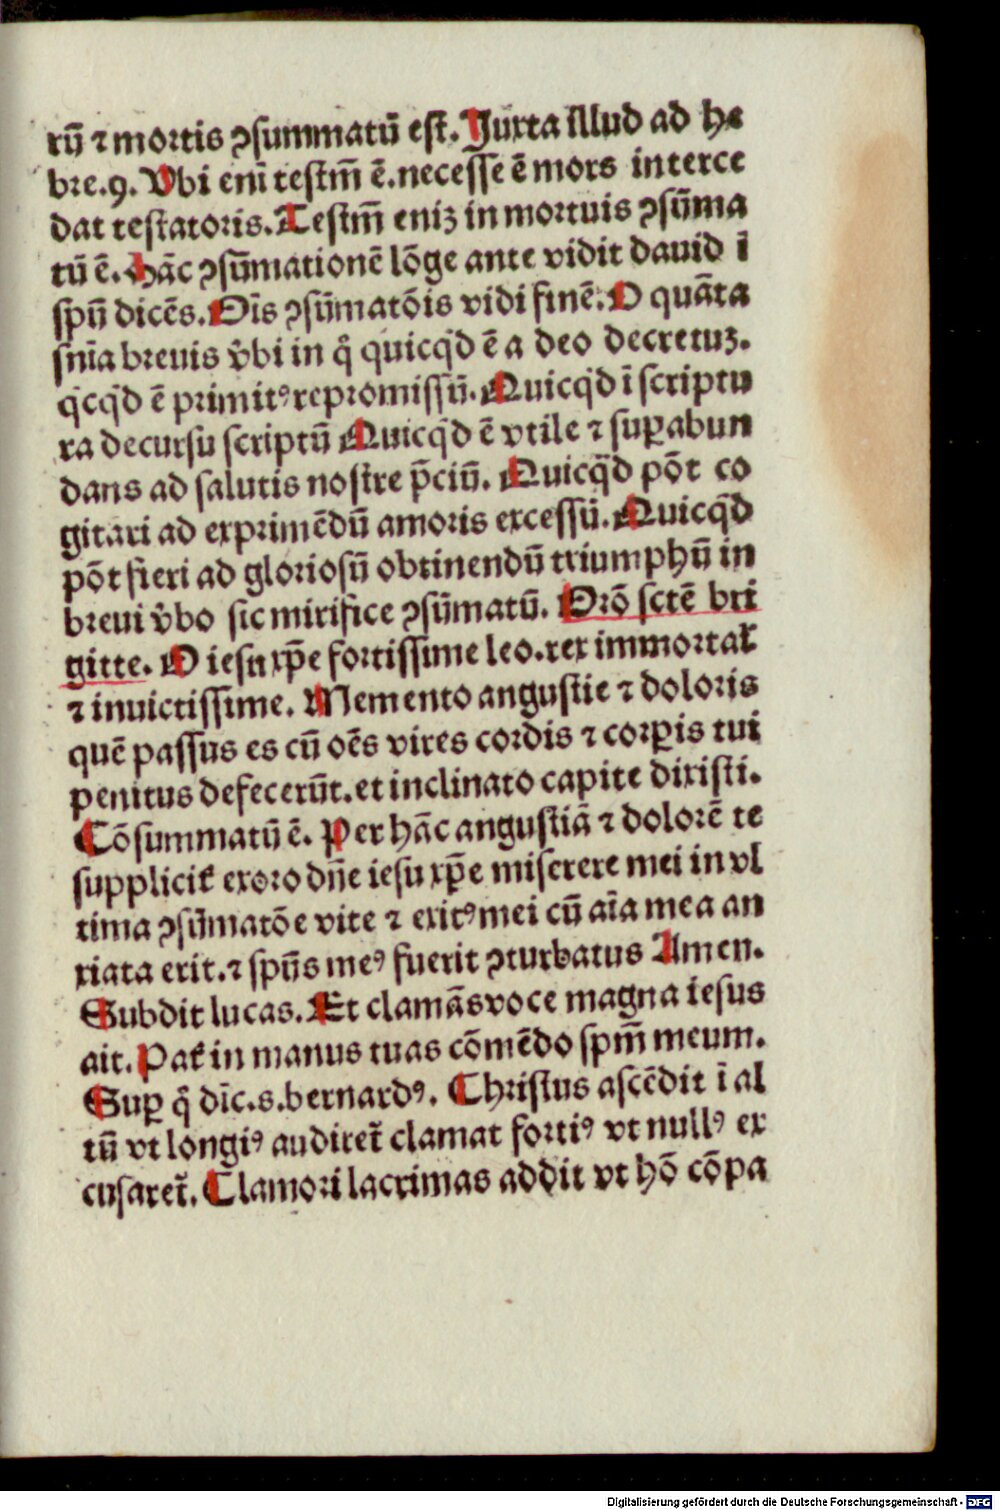 rū ⁊ mortis ꝯsummatū est. Juxta illud ad he
bre.9. Vbi enī testm̄ ē. necesse ē mors interce
dat testatoris. Testm̄ eniꝫ in mortuis ꝯsūma
tū ē. Hāc ꝯsūmationē lōge ante vidit dauid ī
spū dicēs. Oīs ꝯsūmatōis vidi finē. O quāta
snīa breuis v̄bi in q̄ quicq̄d ē a deo decretuꝫ.
q̄cq̄d ē primitꝰ repromissū. Quicq̄d ī scriptu
ra decursu scriptū Quicq̄d ē vtile ⁊ suꝑabun
dans ad salutis nostre p̄ciū. Quicq̄d pōt co
gitari ad exprimēdū amoris excessū. Quicq̄d
pōt fieri ad gloriosū obtinendū triumphū in
breui v̄bo sic mirifice ꝯsūmatū. Orō sctē bri
gitte. O iesu xp̄e fortissime leo. rex immortal̄
⁊ inuictissime. Memento angustie ⁊ doloris
quē passus es cū oēs vires cordis ⁊ corꝑis tui
penitus defecerūt. et inclinato capite dixisti.
Cōsummatū ē. Per hāc angustiā ⁊ dolorē te
supplicit̄ exoro dn̄e iesu xp̄e miserere mei in vl
tima ꝯsūmatōe vite ⁊ exitꝰ mei cū aīa mea an
xiata erit. ⁊ spūs meꝰ fuerit ꝯturbatus Amen.
Subdit lucas. Et clamās voce magna iesus
ait. Pat̄ in manus tuas cōmēdo spm̄ meum.
Suꝑ q̄ dīc.s.bernardꝰ. Christus ascēdit ī al
tū vt longiꝰ audiret̄ clamat fortiꝰ vt nullꝰ ex
cusaret̄. Clamori lacrimas addit vt hō cōpa
Digitalisierung gefördert durch die Deutsche Forschungsgemeinschaft - DFG